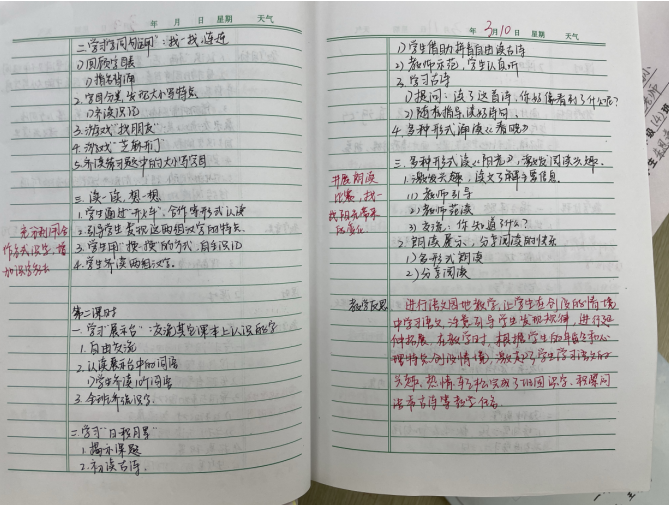 年 月 日 星期 天气
二.学习"字词句运用":找一找,连一连
1.回顾字母表
2.字母分类,发现大小写特点
3.游戏"找朋友"
4.游戏"芝麻开门"
三.读一读,想一想
1.学生通过"开火车",合作等形式认读
2.引导学生发现这两组汉字的特点.
3.学生用"换一换"的方式,自主识记
4.学生齐读两组汉字.
充分利用合
作方式识字,
第二课时
一.学习"展示台":交流其它课本上认识的字
1.自由交流
2.认读展示台中的词语
1)学生齐读10个词语
二.学习"日积月累"
1.揭示课题
2.初读古诗.
年 3月10日 星期 天气
1)学生借助拼音自由读古诗
2)教师示范,学生认真听
3.学习古诗
1)提问:读了这首诗,你好像看到了什么呢?
2)随文指导读好诗句
三.多种形式读《阳光》,激发阅读兴趣.
1.激发兴趣,读文了解主要信息.
1)教师引导
2)教师范读
3)交流:你知道了什么?
2.朗读展示,分享阅读的快乐
1)各形式朗读
2)分享阅读
开展朗读
比赛,找一
教学反思 进行语文园地教学,让学生在创设的情境
中学习语文,注意引导学生发现规律,进行延
伸拓展.在教学时,根据学生的年龄和心
理特点,创设情境,激发了学生学习语文的
兴趣、热情,轻松完成了巩固识字、积累词
语和古诗等教学任务